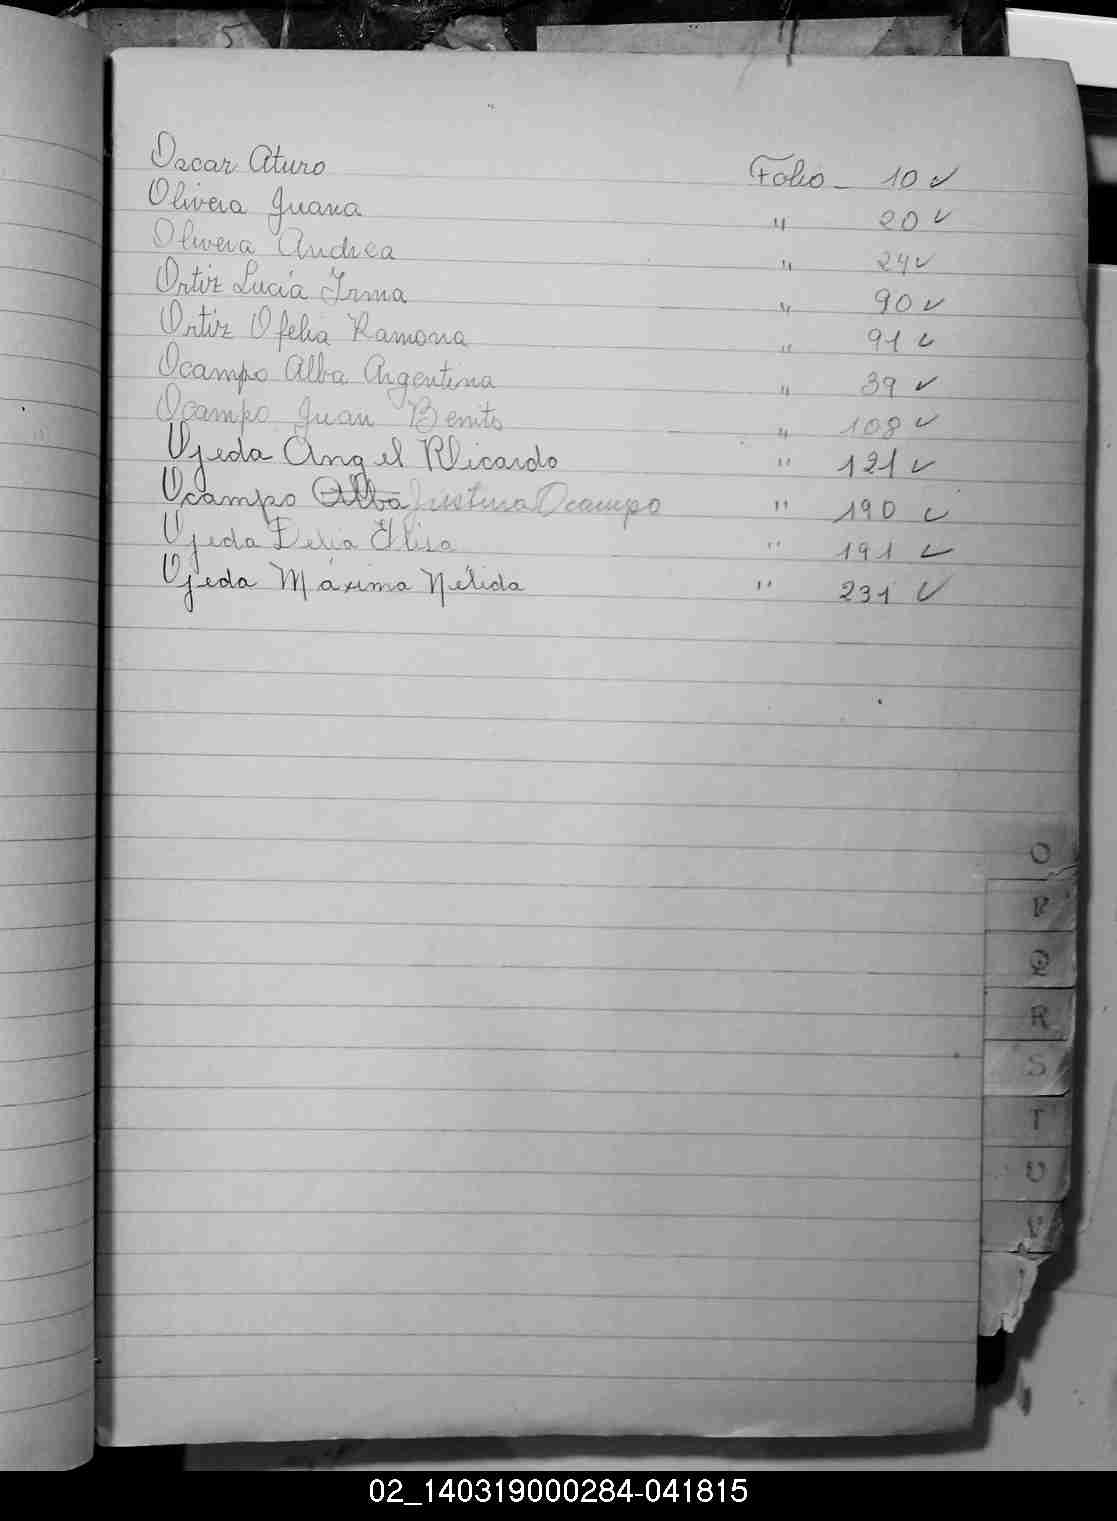 Oscar Aturo Folio - 10 ✓
Olivera Juana " 20 ✓
Olivera Andrea " 24 ✓
Ortiz Lucía Irma " 90 ✓
Ortiz Ofelia Ramona " 91 ✓
Ocampo Alba Argentina " 39 ✓
Ocampo Juan Benito " 108 ✓
Ojeda Angel Ricardo " 121 ✓
Ocampo Alba Justina Ocampo " 190 ✓
Ojeda Delia Elisa " 191 ✓
Ojeda Máxima Nélida " 231 ✓
O
P
Q
R
S
T
U
V
02_140319000284-041815